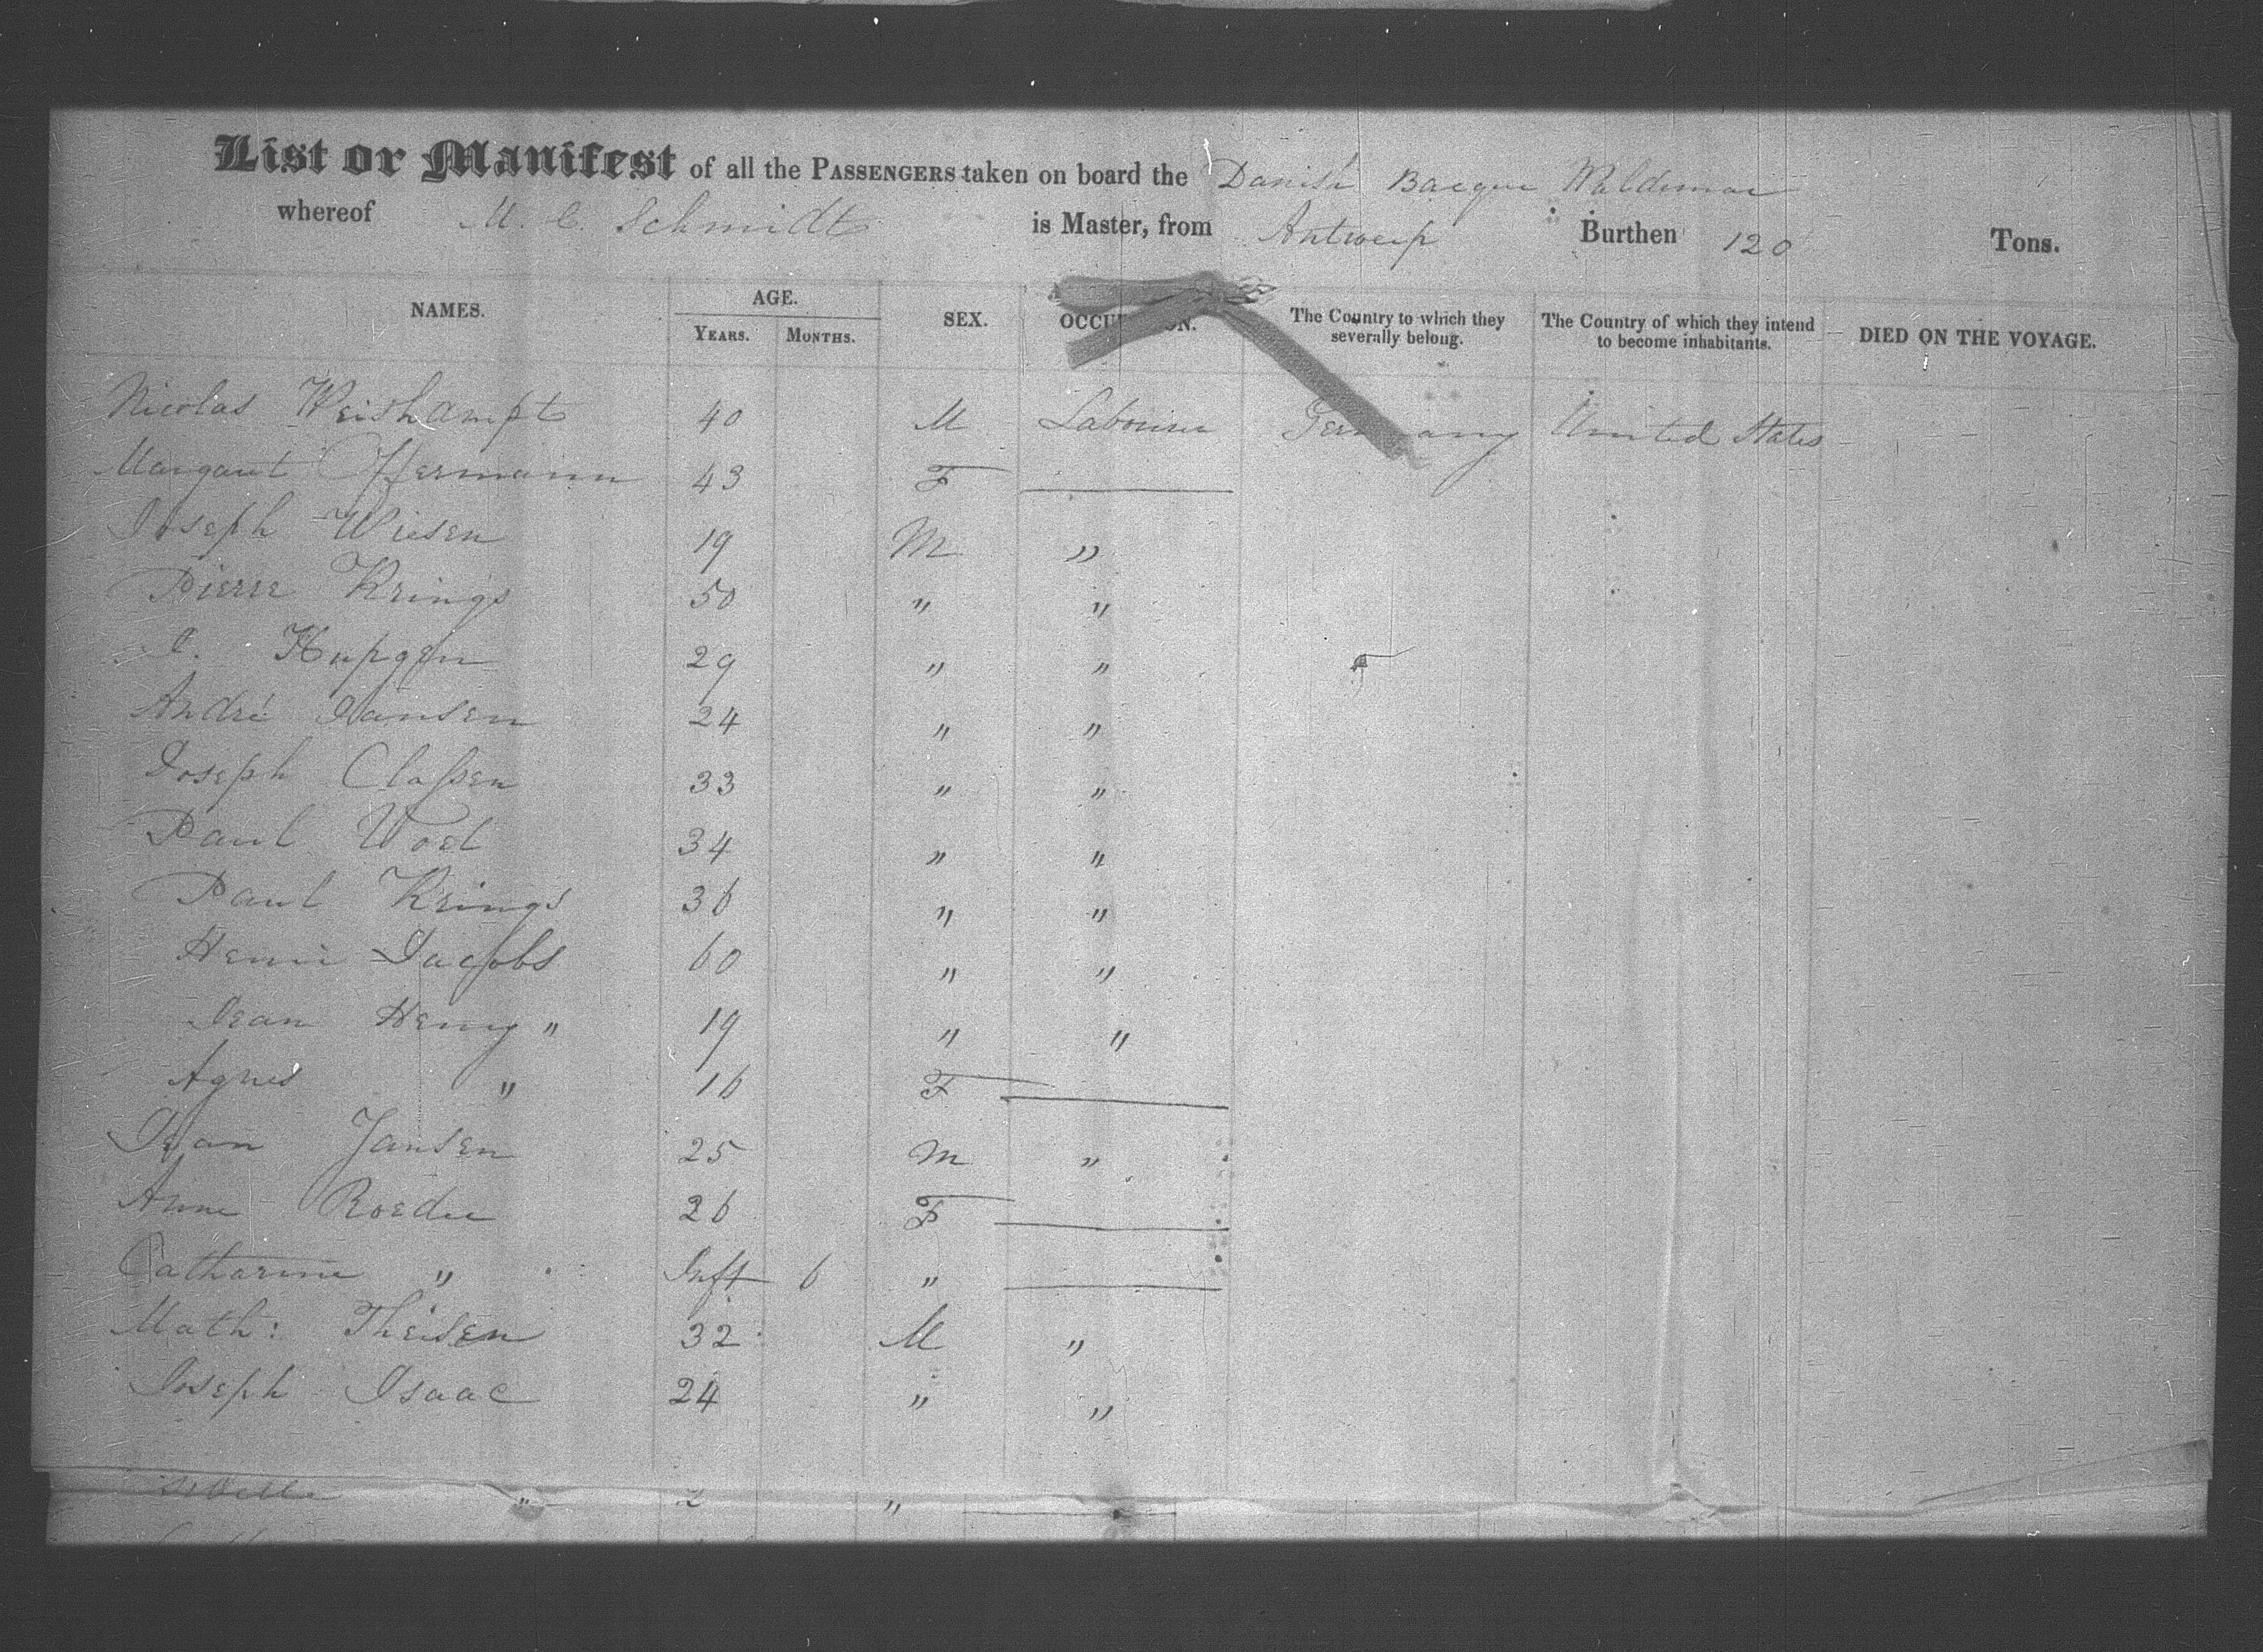 List or Manifest of all the PASSENGERS taken on board the Danish Barque Waldemar
whereof M. C. Schmidt is Master, from Antwerp Burthen 120 Tons.
NAMES. AGE. YEARS. MONTHS. SEX. OCCUPATION. The Country to which they severally belong. The Country of which they intend to become inhabitants. DIED ON THE VOYAGE.
Nicolas Weishampt 40 M Labourer Germany United States
Margaret Offermann 43 F
Joseph Wiesen 19 M "
Pierre Krings 50 " "
C. Hupgen 29 " "
André Jansen 24 " "
Joseph Claßen 33 " "
Paul Voel 34 " "
Paul Krings 36 " "
Henri Jacobs 60 " "
Jean Henry " 19 " "
Agnes " 16 F
Jean Jansen 25 M "
Anne Roeder 26 F
Catharine " Inft 6 "
Math: Theisen 32 M "
Joseph Isaac 24 " "
" 2 "